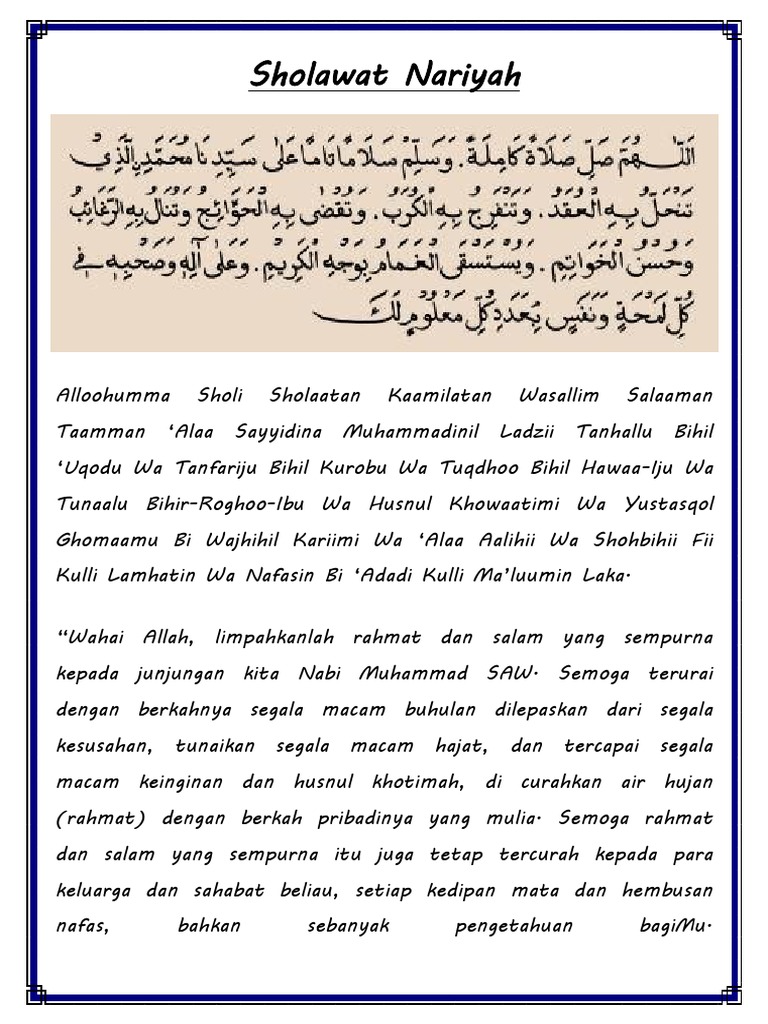 Sholawat Nariyah
اَللّٰهُمَّ صَلِّ صَلَاةً كَامِلَةً. وَسَلِّمْ سَلَامًا تَامًّا عَلٰى سَيِّدِنَا مُحَمَّدِ نِالَّذِيْ
تَنْحَلُّ بِهِ الْعُقَدُ. وَتَنْفَرِجُ بِهِ الْكُرَبُ. وَتُقْضٰى بِهِ الْحَوَائِجُ وَتُنَالُ بِهِ الرَّغَائِبُ
وَحُسْنُ الْخَوَاتِمِ. وَيُسْتَسْقَى الْغَمَامُ بِوَجْهِهِ الْكَرِيْمِ. وَعَلٰى آلِهٖ وَصَحْبِهٖ فِيْ
كُلِّ لَمْحَةٍ وَنَفَسٍ بِعَدَدِ كُلِّ مَعْلُوْمٍ لَكَ
Alloohumma Sholi Sholaatan Kaamilatan Wasallim Salaaman
Taamman ‘Alaa Sayyidina Muhammadinil Ladzii Tanhallu Bihil
‘Uqodu Wa Tanfariju Bihil Kurobu Wa Tuqdhoo Bihil Hawaa-Iju Wa
Tunaalu Bihir-Roghoo-Ibu Wa Husnul Khowaatimi Wa Yustasqol
Ghomaamu Bi Wajhihil Kariimi Wa ‘Alaa Aalihii Wa Shohbihii Fii
Kulli Lamhatin Wa Nafasin Bi ‘Adadi Kulli Ma’luumin Laka.
“Wahai Allah, limpahkanlah rahmat dan salam yang sempurna
kepada junjungan kita Nabi Muhammad SAW. Semoga terurai
dengan berkahnya segala macam buhulan dilepaskan dari segala
kesusahan, tunaikan segala macam hajat, dan tercapai segala
macam keinginan dan husnul khotimah, di curahkan air hujan
(rahmat) dengan berkah pribadinya yang mulia. Semoga rahmat
dan salam yang sempurna itu juga tetap tercurah kepada para
keluarga dan sahabat beliau, setiap kedipan mata dan hembusan
nafas, bahkan sebanyak pengetahuan bagiMu.